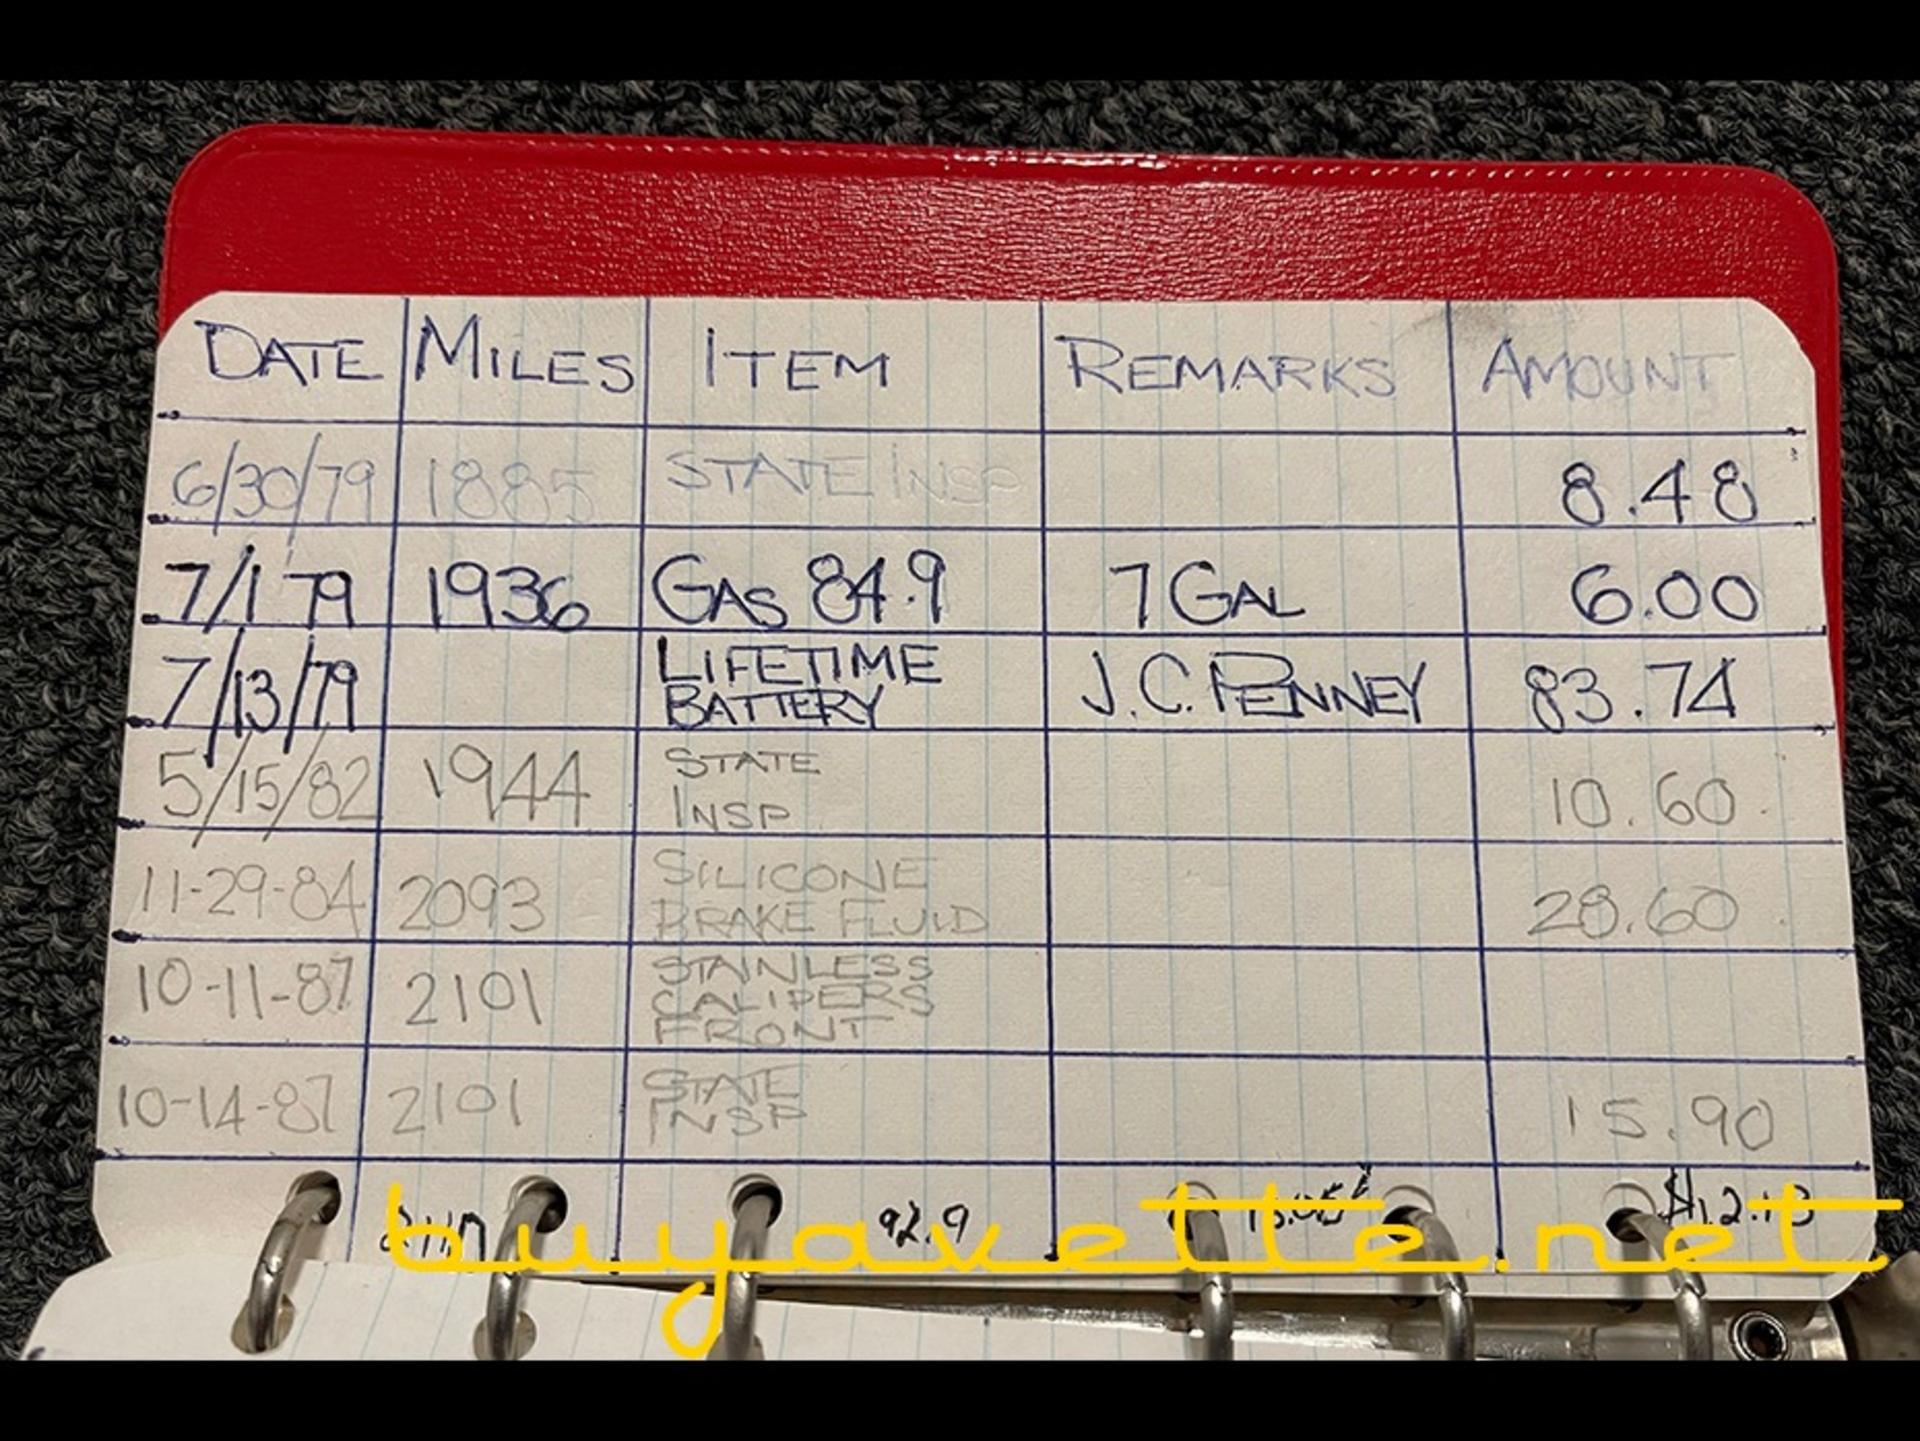 DATE MILES ITEM REMARKS AMOUNT
6/30/79 1885 STATE INSP 8.48
7/1 79 1936 GAS 84.9 7 GAL 6.00
7/13/79 LIFETIME BATTERY J.C. PENNEY 83.74
5/15/82 1944 STATE INSP 10.60
11-29-84 2093 SILICONE BRAKE FLUID 28.60
10-11-87 2101 STAINLESS CALIPERS FRONT
10-14-87 2101 STATE INSP 15.90
92.9
buyavette.net